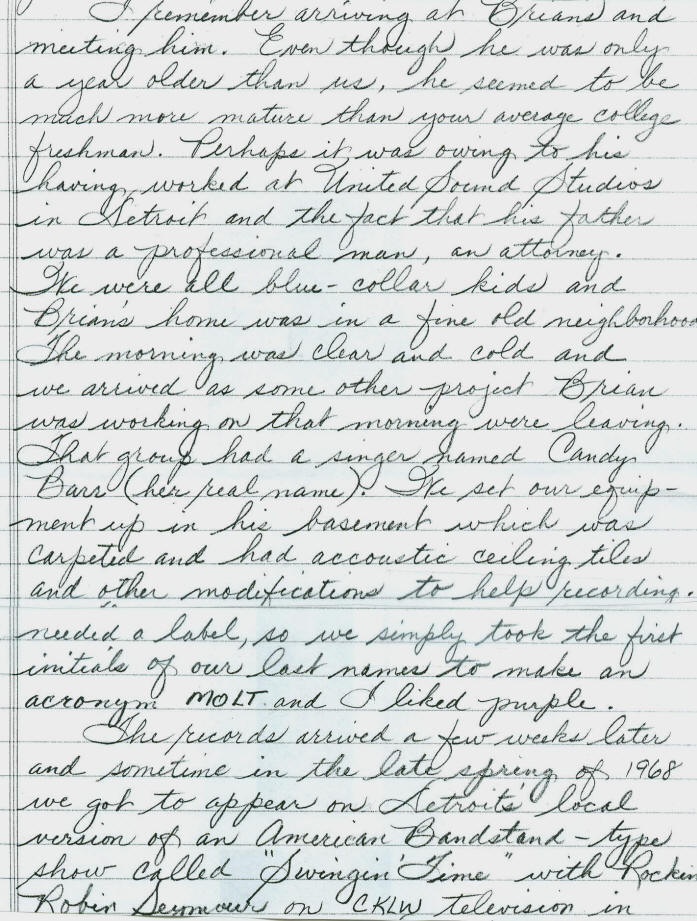 I remember arriving at Brians and
meeting him. Even though he was only
a year older than us, he seemed to be
much more mature than your average college
freshman. Perhaps it was owing to his
having worked at United Sound Studios
in Detroit and the fact that his father
was a professional man, an attorney.
We were all blue-collar kids and
Brian's home was in a fine old neighborhood
The morning was clear and cold and
we arrived as some other project Brian
was working on that morning were leaving.
That group had a singer named Candy
Barr (her real name). We set our equip-
ment up in his basement which was
carpeted and had accoustic ceiling tiles
and other modifications to help recording.
needed a label, so we simply took the first
initials of our last names to make an
acronym MOLT and I liked purple.
The records arrived a few weeks later
and sometime in the late spring of 1968
we got to appear on Detroit's local
version of an American Bandstand-type
show called "Swingin' Time" with Rockin
Robin Seymour on CKLW television in